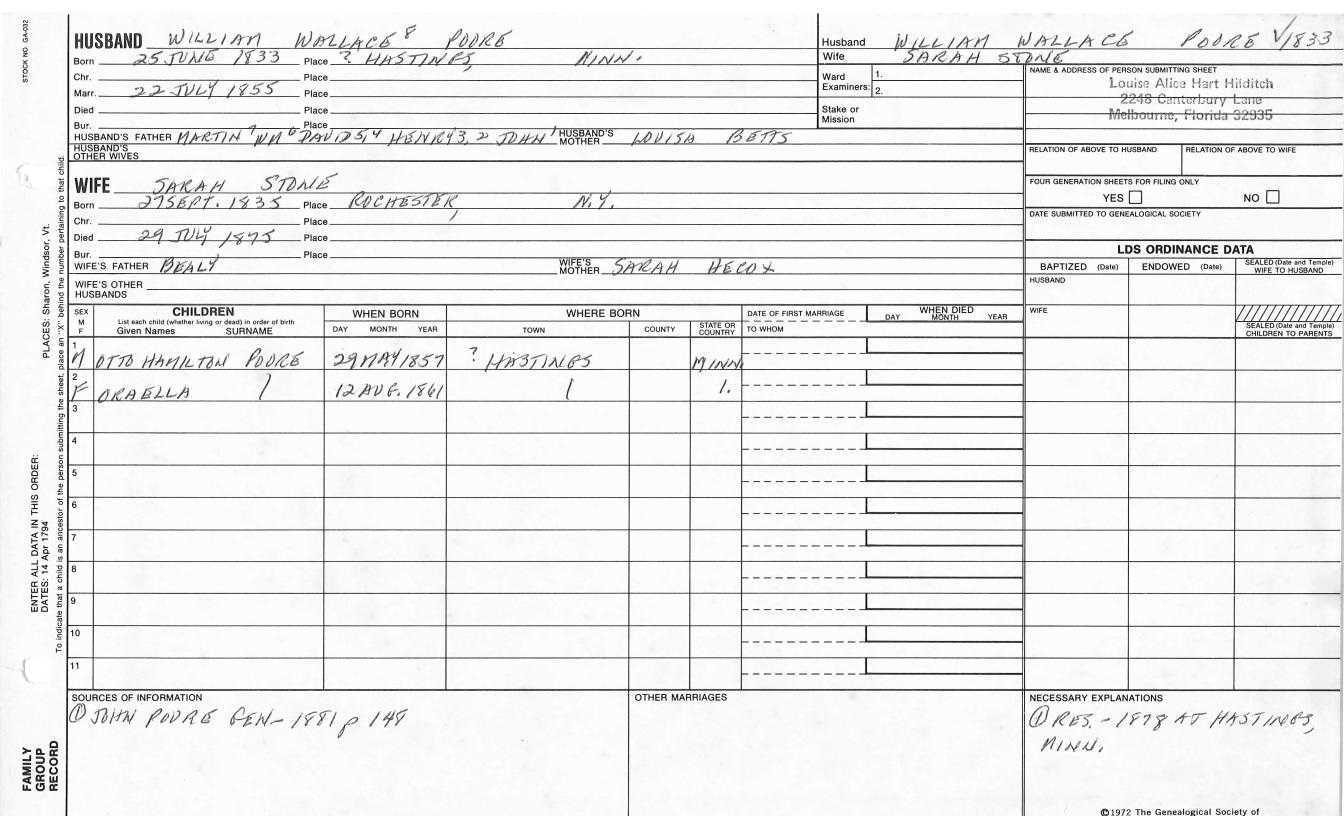 STOCK NO. GA-032
HUSBAND WILLIAM WALLACE 8 POORE
Born 25 JUNE 1833 Place ? HASTINGS, MINN.
Chr. Place
Marr. 22 JULY 1855 Place
Died Place
Bur. Place
HUSBAND'S FATHER MARTIN 7 WM 6 DAVID 5, 4 HENRY 3, 2 JOHN 1 HUSBAND'S MOTHER LOUISA BETTS
HUSBAND'S OTHER WIVES
WIFE SARAH STONE
Born 27 SEPT. 1835 Place ROCHESTER, N.Y.
Chr. Place
Died 29 JULY 1875 Place
Bur. Place
WIFE'S FATHER BEALY WIFE'S MOTHER SARAH HECOX
WIFE'S OTHER HUSBANDS
Husband WILLIAM WALLACE POORE V/1833
Wife SARAH STONE
Ward Examiners: 1.
2.
Stake or Mission
NAME & ADDRESS OF PERSON SUBMITTING SHEET
Louise Alice Hart Hilditch
2248 Canterbury Lane
Melbourne, Florida 32935
RELATION OF ABOVE TO HUSBAND RELATION OF ABOVE TO WIFE
FOUR GENERATION SHEETS FOR FILING ONLY
YES NO
DATE SUBMITTED TO GENEALOGICAL SOCIETY
LDS ORDINANCE DATA
BAPTIZED (Date) ENDOWED (Date) SEALED (Date and Temple) WIFE TO HUSBAND
HUSBAND
WIFE
SEALED (Date and Temple) CHILDREN TO PARENTS
SEX M F CHILDREN WHEN BORN WHERE BORN DATE OF FIRST MARRIAGE WHEN DIED
List each child (whether living or dead) in order of birth
Given Names SURNAME DAY MONTH YEAR TOWN COUNTY STATE OR COUNTRY TO WHOM DAY MONTH YEAR
1 M OTTO HAMILTON POORE 29 MAY 1857 ? HASTINGS MINN.
2 F ORAELLA 12 AUG. 1861
3
4
5
6
7
8
9
10
11
SOURCES OF INFORMATION
① JOHN POORE GEN- 1881 p 149
OTHER MARRIAGES
NECESSARY EXPLANATIONS
① RES. - 1878 AT HASTINGS,
MINN.
©1972 The Genealogical Society of
PLACES: Sharon, Windsor, Vt.
ENTER ALL DATA IN THIS ORDER:
DATES: 14 Apr 1794
To indicate that a child is an ancestor of the person submitting the sheet, place an "X" behind the number pertaining to that child.
FAMILY
GROUP
RECORD